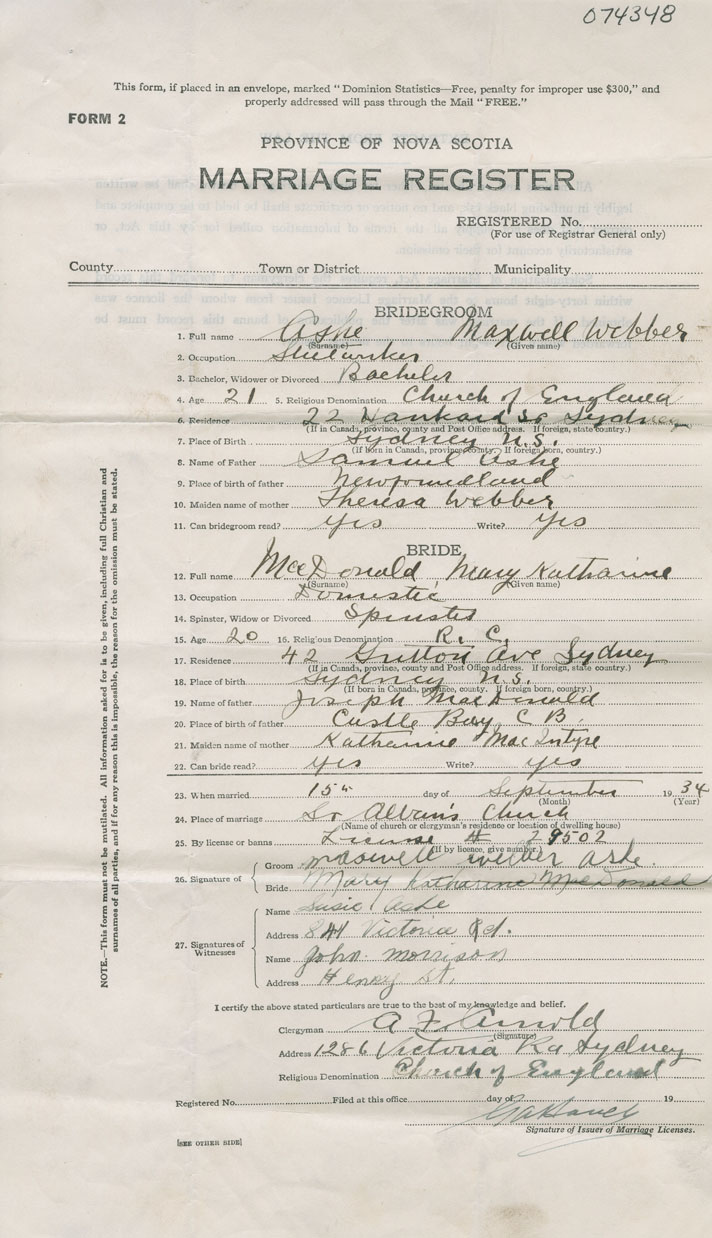 074348
This form, if placed in an envelope, marked "Dominion Statistics—Free, penalty for improper use $300," and
properly addressed will pass through the Mail "FREE."
FORM 2
PROVINCE OF NOVA SCOTIA
MARRIAGE REGISTER
REGISTERED No.
(For use of Registrar General only)
County Town or District Municipality
BRIDEGROOM
1. Full name Ashe Maxwell Webber
(Surname) (Given name)
2. Occupation Steelworker
3. Bachelor, Widower or Divorced Bachelor
4. Age 21 5. Religious Denomination Church of England
6. Residence 22 St Sydney
(If in Canada, province, county and Post Office address. If foreign, state country.)
7. Place of Birth Sydney N.S.
(If born in Canada, province, county. If foreign born, country.)
8. Name of Father Samuel Ashe
9. Place of birth of father Newfoundland
10. Maiden name of mother Theresa Webber
11. Can bridegroom read? Yes Write? Yes
BRIDE
12. Full name MacDonald Mary Katharine
(Surname) (Given name)
13. Occupation Domestic
14. Spinster, Widow or Divorced Spinster
15. Age 20 16. Religious Denomination R. C.
17. Residence 42 Ave Sydney
(If in Canada, province, county and Post Office address. If foreign, state country.)
18. Place of birth Sydney N.S.
(If born in Canada, province, county. If foreign born, country.)
19. Name of father Joseph MacDonald
20. Place of birth of father Castle Bay, C B.
21. Maiden name of mother Katharine MacIntyre
22. Can bride read? Yes Write? Yes
23. When married 15th day of September 1934
(Month) (Year)
24. Place of marriage St Alban's Church
(Name of church or clergyman's residence or location of dwelling house)
25. By license or banns License # 29502
(If by licence, give number.)
26. Signature of
Groom Maxwell Webber Ashe.
Bride Mary Katharine MacDonald
27. Signatures of
Witnesses
Name Susie Ashe
Address 841 Victoria Rd.
Name John Morrison
Address Henry St.
I certify the above stated particulars are true to the best of my knowledge and belief.
Clergyman A F Arnold
(Signature)
Address 1286 Victoria Rd Sydney
Religious Denomination Church of England
Registered No. Filed at this office day of 19
Signature of Issuer of Marriage Licenses.
[SEE OTHER SIDE]
NOTE.—This form must not be mutilated. All information asked for is to be given, including full Christian and
surnames of all parties, and if for any reason this is impossible, the reason for the omission must be stated.